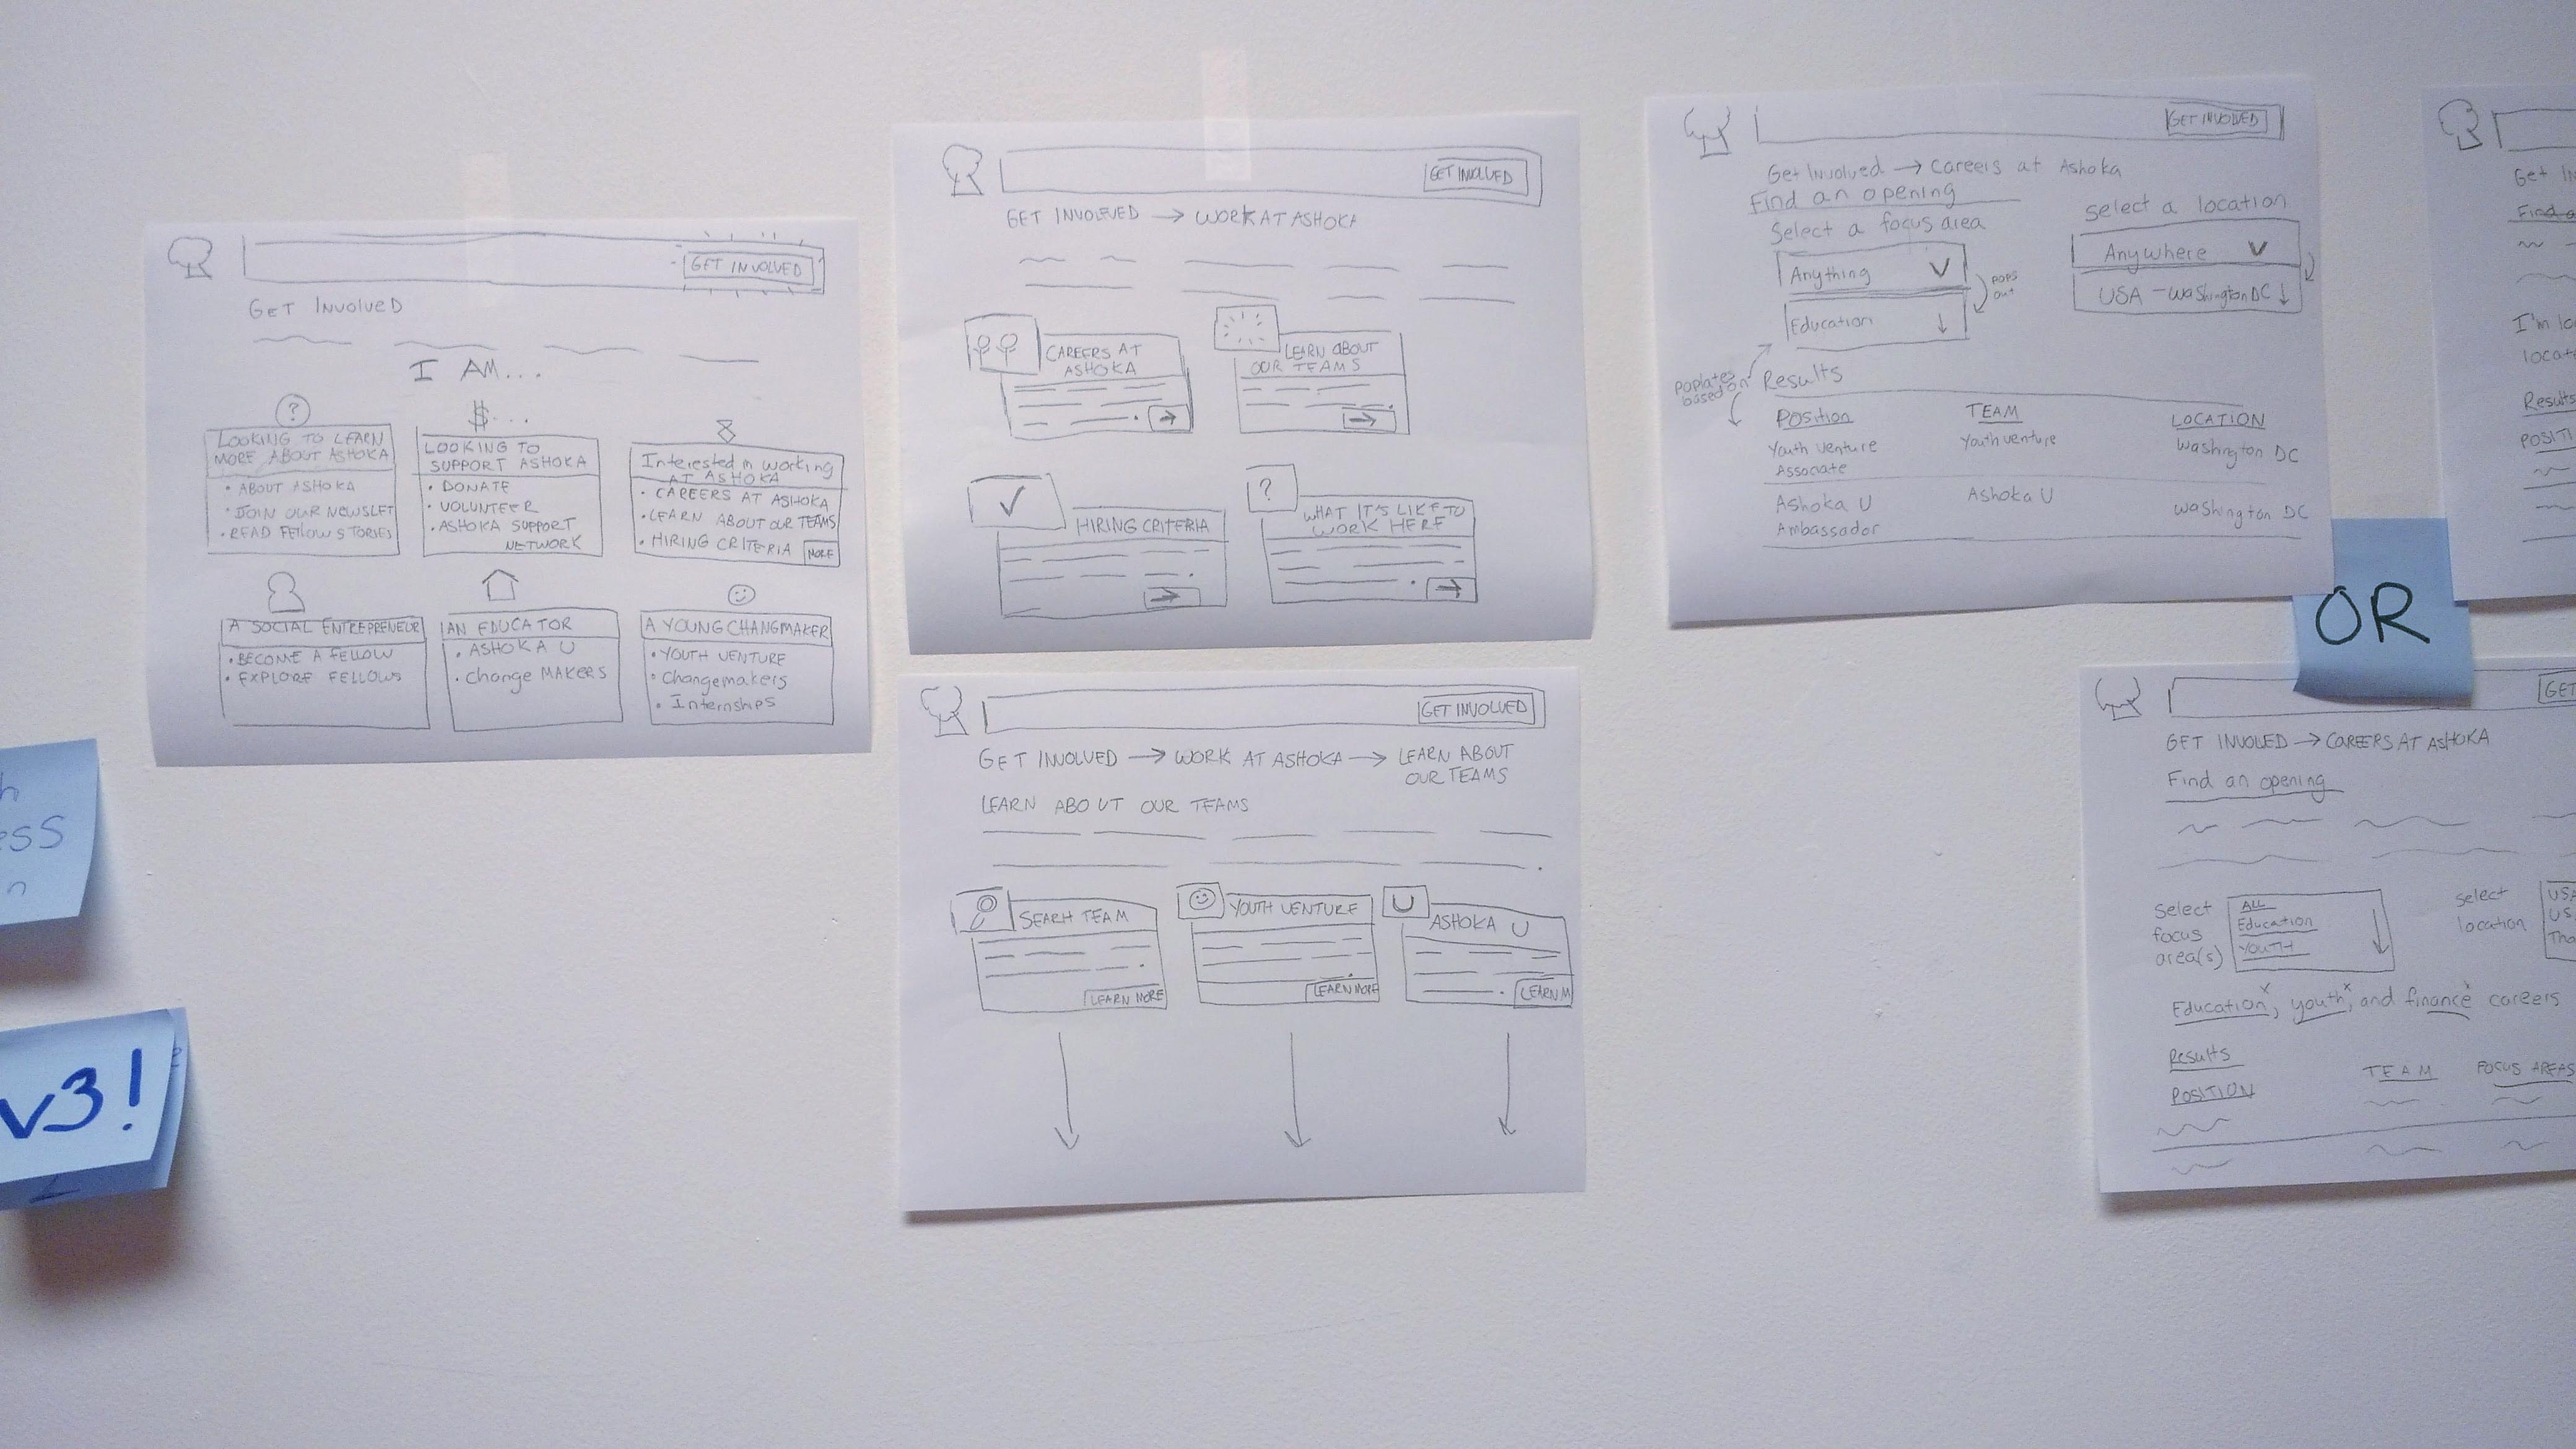 GET INVOLVED
GET INVOLVED
I AM...
?
$...
LOOKING TO LEARN
MORE ABOUT ASHOKA
• ABOUT ASHOKA
• JOIN OUR NEWSLET
• READ FELLOW STORIES
LOOKING TO
SUPPORT ASHOKA
• DONATE
• VOLUNTEER
• ASHOKA SUPPORT
NETWORK
Interested in working
AT ASHOKA
• CAREERS AT ASHOKA
• LEARN ABOUT OUR TEAMS
• HIRING CRITERIA
MORE
A SOCIAL ENTREPRENEUR
• BECOME A FELLOW
• EXPLORE FELLOWS
AN EDUCATOR
• ASHOKA U
• Change MAKERS
A YOUNG CHANGMAKER
• YOUTH VENTURE
• Changemakers
• Internships
GET INVOLVED
GET INVOLEVED → WORK AT ASHOKA
CAREERS AT
ASHOKA
LEARN ABOUT
OUR TEAMS
HIRING CRITERIA
?
WHAT IT'S LIKE TO
WORK HERE
GET INVOLVED
GET INVOLVED → WORK AT ASHOKA → LEARN ABOUT
OUR TEAMS
LEARN ABOUT OUR TEAMS
SEARH TEAM
LEARN MORE
YOUTH VENTURE
LEARN MORE
U
ASHOKA U
LEARN M
GET INVOLVED
Get Involved → Careers at Ashoka
Find an opening
Select a focus area
Anything
Education
pops
out
Select a location
Anywhere
USA - Washington DC
poplates
based on
Results
POSITION TEAM LOCATION
Youth Venture
Associate
Youth venture
Washington DC
Ashoka U
Ambassador
Ashoka U
Washington DC
Get In
Find a
I'm lo
locat
Results
POSITI
OR
GET
GET INVOLED → CAREERS AT ASHOKA
Find an opening
Select
focus
area(s)
ALL
Education
YOUTH
select
location
USA
US
Tha
Education x, youth x, and finance x careers
Results
POSITION TEAM FOCUS AREAS
h
ess
n
v3!